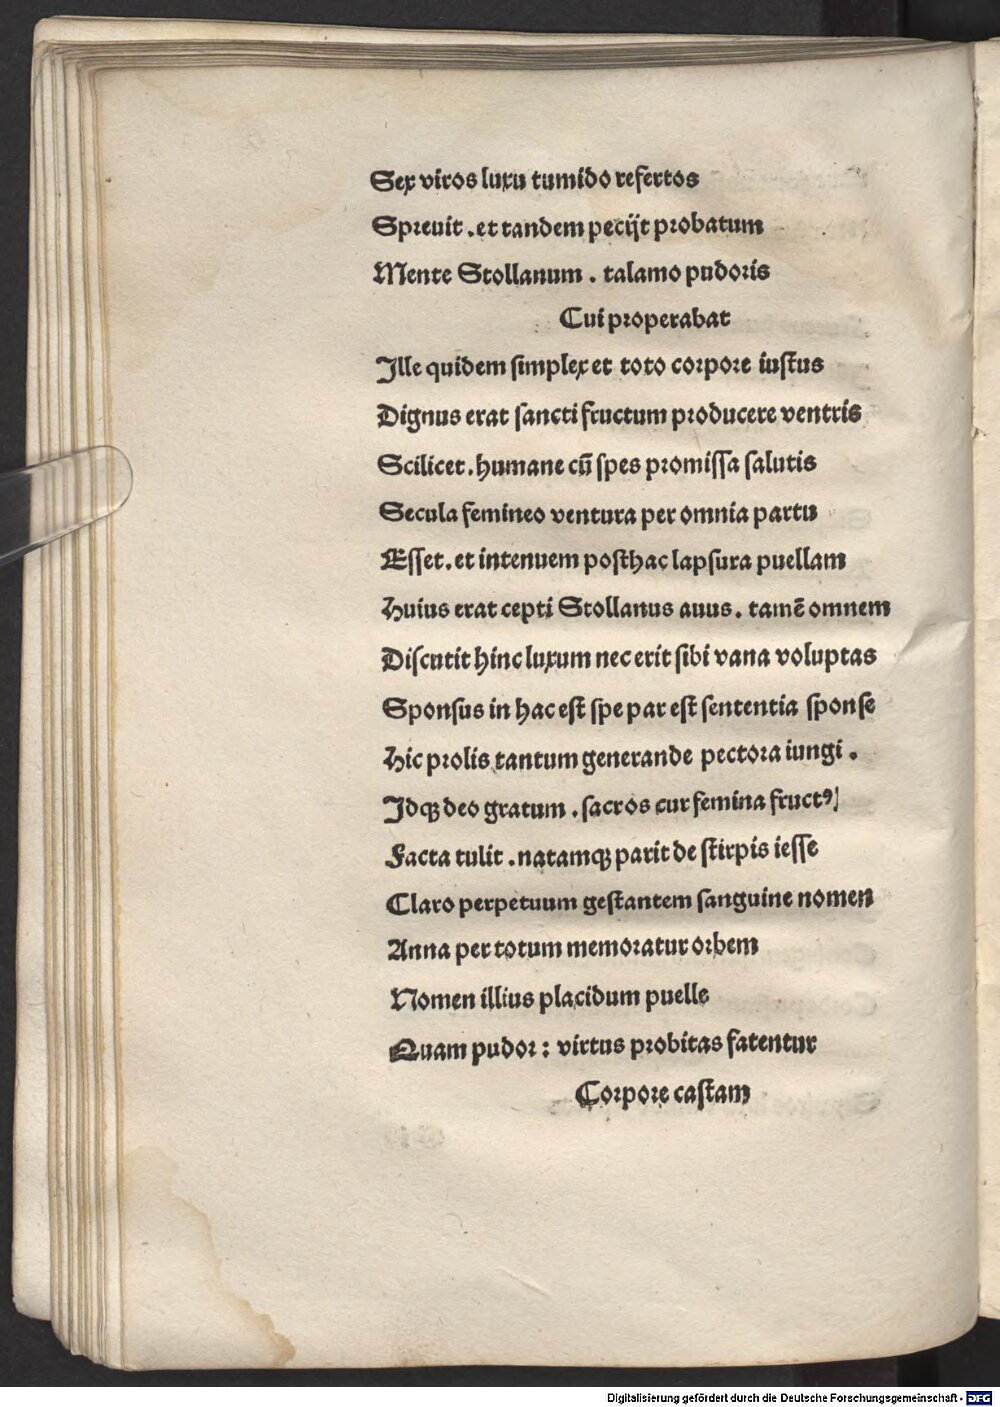 Sex viros luxu tumido refertos
Spreuit . et tandem pecijt probatum
Mente Stollanum . talamo pudoris
Cui properabat
Ille quidem simplex et toto corpore iustus
Dignus erat sancti fructum producere ventris
Scilicet . humane cū spes promissa salutis
Secula femineo ventura per omnia partu
Esset . et intenuem posthac lapsura puellam
Huius erat cepti Stollanus auus . tamē omnem
Discutit hinc luxum nec erit sibi vana voluptas
Sponsus in hac est spe par est sententia sponse
Hic prolis tantum generande pectora iungi .
Idqꝫ deo gratum . sacros cur femina fructꝰ
Facta tulit . natamqꝫ parit de stirpis iesse
Claro perpetuum gestantem sanguine nomen
Anna per totum memoratur orbem
Nomen illius placidum puelle
Quam pudor : virtus probitas fatentur
Corpore castam
Digitalisierung gefördert durch die Deutsche Forschungsgemeinschaft - DFG